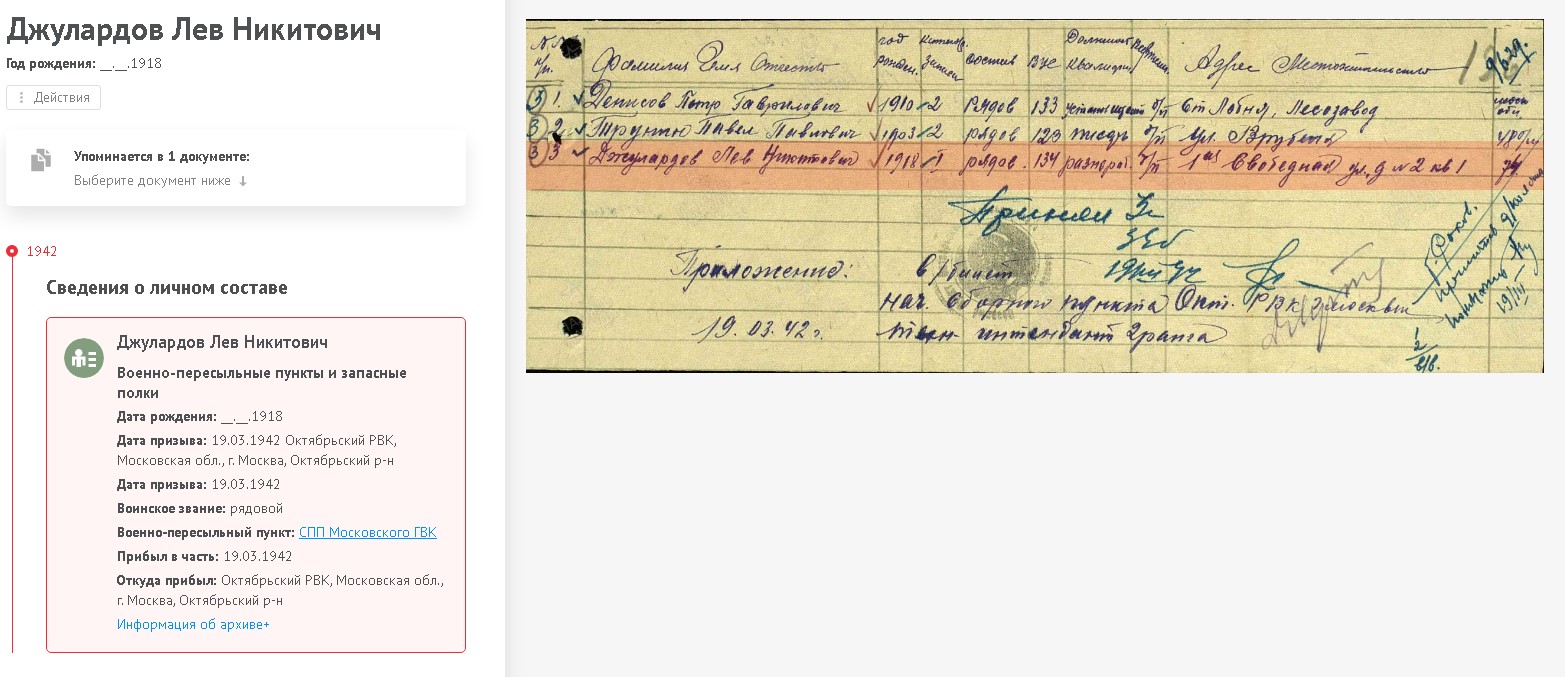 Джулардов Лев Никитович
Год рождения: __.__.1918
Действия
Упоминается в 1 документе:
Выберите документ ниже ↓
1942
Сведения о личном составе
Джулардов Лев Никитович
Военно-пересыльные пункты и запасные
полки
Дата рождения: __.__.1918
Дата призыва: 19.03.1942 Октябрьский РВК,
Московская обл., г. Москва, Октябрьский р-н
Дата призыва: 19.03.1942
Воинское звание: рядовой
Военно-пересыльный пункт: СПП Московского ГВК
Прибыл в часть: 19.03.1942
Откуда прибыл: Октябрьский РВК, Московская обл.,
г. Москва, Октябрьский р-н
Информация об архиве+
№№ п/п. Фамилия Имя Отчество год рожден. состав ВУС Адрес Местожительство
3 1. Денисов Петр Гаврилович 1910 2 рядов 133 б/п ст Лобня, Лесозавод
3 2 Павел Павлович 1903 2 рядов 123 б/п ул. Врубеля
3 3 Джулардов Лев Никитович 1918 I рядов. 134 разнораб. б/п 1ая Свободная ул. д №2 кв 1
Принял
Приложение:
нач. сборного пункта Окт. РВК г Москвы
19.03.42г. техн- интендант 2 ранга
19/III